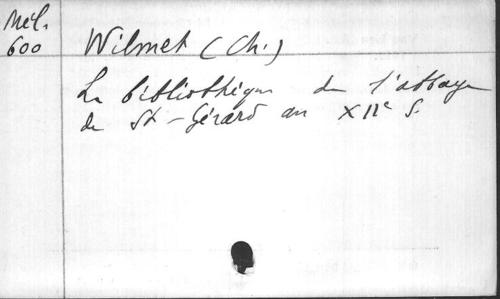 Mél.
600
Wilmet (Ch.)
La bibliothèque de l'abbaye
de St-Gérard au XIIe S.